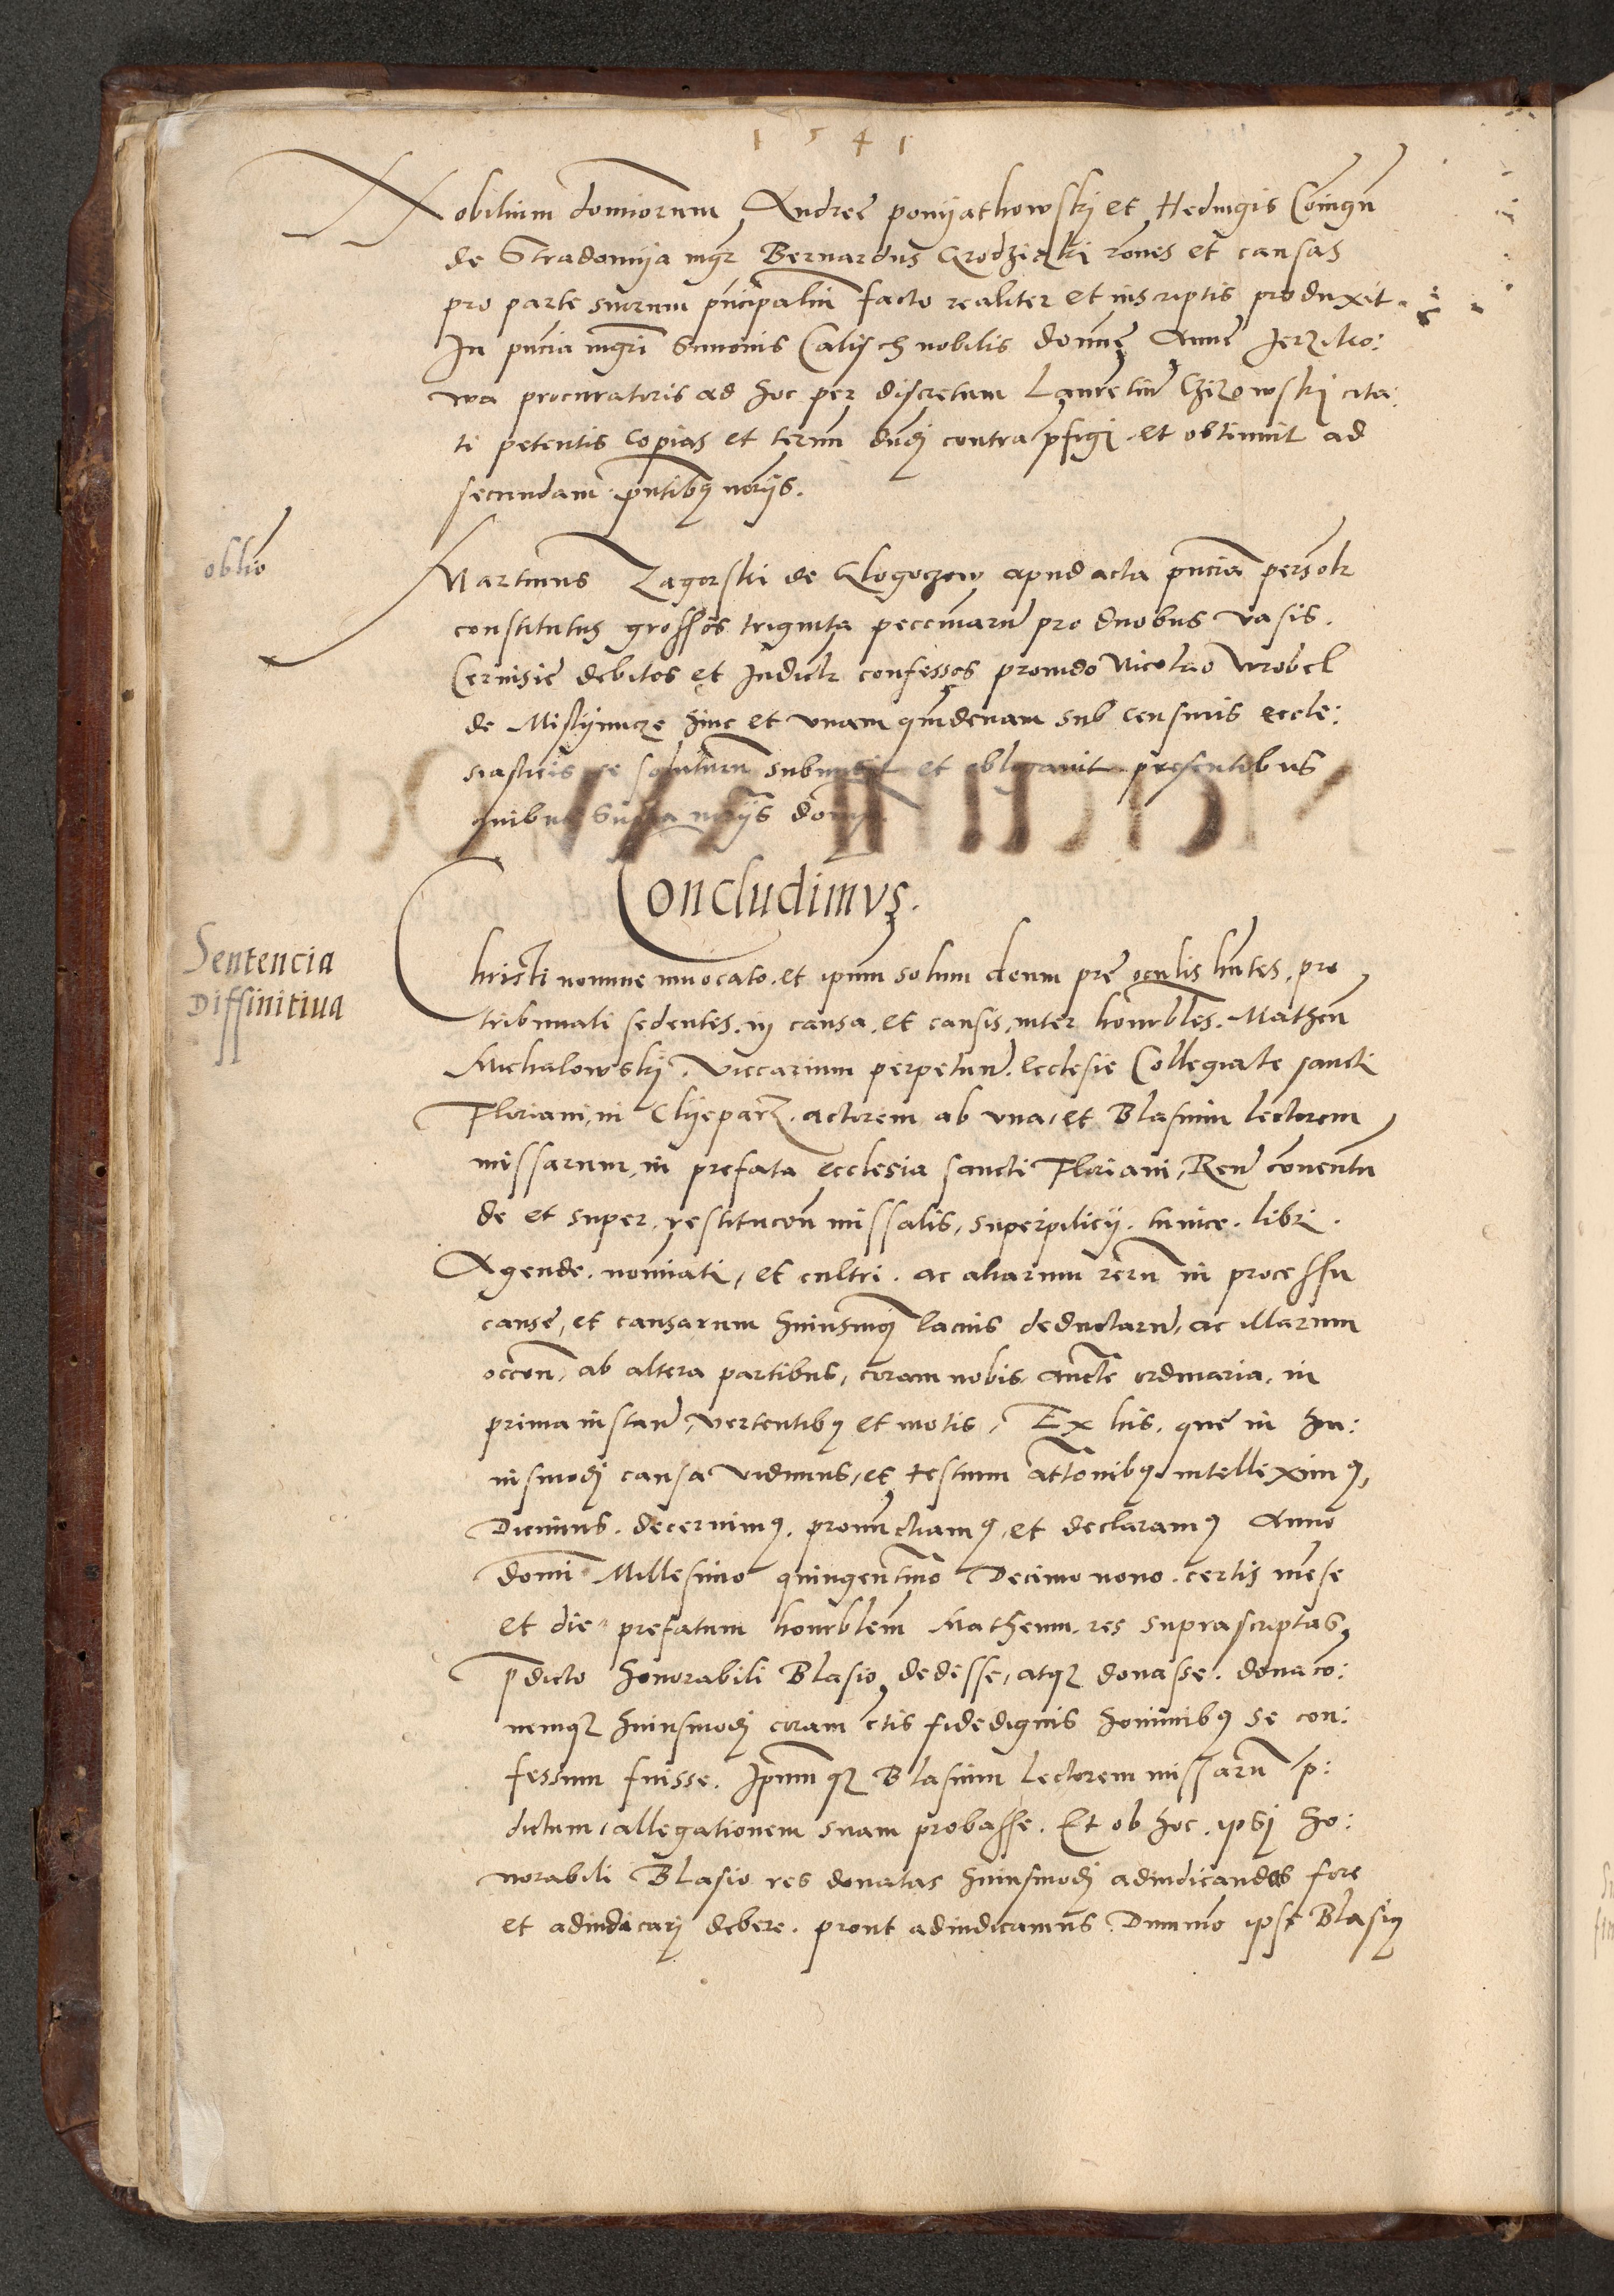 1541
Nobilium domiorum Andree ponyathowskj et Hedwigis Coniugu
de Stradomya mgr Bernardus Grodziczki rones et causas
pro parte suorum principaliu facto realiter et inscriptis produxit
In pntia mgri Simonis Calisch nobilis domne Anne Jerziko:
wa procuratoris ad hoc per discretum Lauretiu Chizowskj cita:
ti petentis copias et termi dndj contra pfigi et obtinuit ad
secundam pntibus norijs.
oblio
Martinus Zagorski de Glogoczow apud acta pntia personlr
constitutus grossos triginta peccuniaru pro duobus vasis
Ceruisie debitos et Judiclr confessos prouido Nicolao Wrobel
de Mislijmicze hinc et vnam quidenam sub censuris eccle:
siasticis se soluturu submisit et obligauit presentibus
quibus Supra norijs domi
Concludimus.
Sentencia
Diffinitiua
Christi nomine inuocato. et ipum solum deum pre oculis hntes. pro
tribunali sedentes. in causa. et causis. inter honrbles. Matheu
Michalowskj. viccarium perpetuu. ecclesie Collegiate sancti
Floriani, in Clijeparz. actorem ab vna, et Blasium lectorem
missarum, in prefata ecclesia sancti Floriani, Reu conuentu
de et super. restitucon missalis, superpilicij. tunice. libri.
Agende. nomiati, et cultri. ac aliarum reru in processu
cause, et causarum huiusmoj lacius deductaru, ac illarum
occon, ab altera partibus, coram nobis auctte ordinaria. in
prima instan, vertentibus et motis, Ex his. que in hu:
iusmodj causa vidimus, et testium attonibus intelleximus,
Dicimus. decernimus. pronunctiamus, et declaramus Anno
domi Millesimo quingentmo Decimo nono. certis mese
et die prefatum honrblem Matheum. res suprascriptas,
pdicto honorabili Blasio dedisse, atque donasse. donaco:
nemque huiusmodj coram ctis fidedignis hominibus se con:
fessum fuisse. Ipumque Blasium lectorem missaru p:
dictum, allegationem suam probasse. Et ob hoc. ipsi ho:
norabili Blasio res donatas huiusmodj adiudicandas fore
et adiudicarj debere. prout adiudicamus. Dummo ipse Blasius